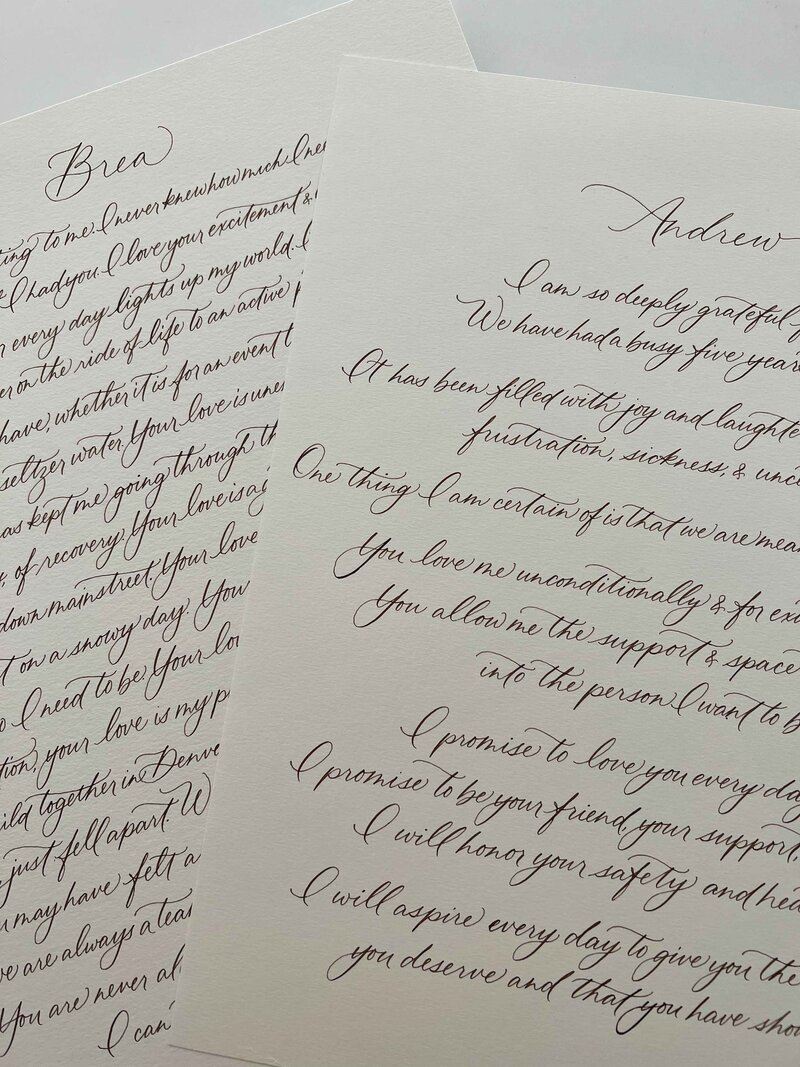 Brea
to me. I never knew how much I
I had you. I love your excitement &
every day lights up my world.
on the ride of life to an active
have, whether it is for an event
seltzer water. Your love is
kept me going through
of recovery. Your love is
down mainstreet. Your love
on a snowy day. You
I need to be. Your
your love is my
together in
just fell apart.
may have felt a
are always a
You are never
I can
Andrew
I am so deeply grateful
We have had a busy five
It has been filled with joy and
frustration, sickness, &
One thing I am certain of is that we are
You love me unconditionally & for
You allow me the support & space
into the person I want to
I promise to love you every
I promise to be your friend, your support,
I will honor your safety and
I will aspire every day to give you the
you deserve and that you have